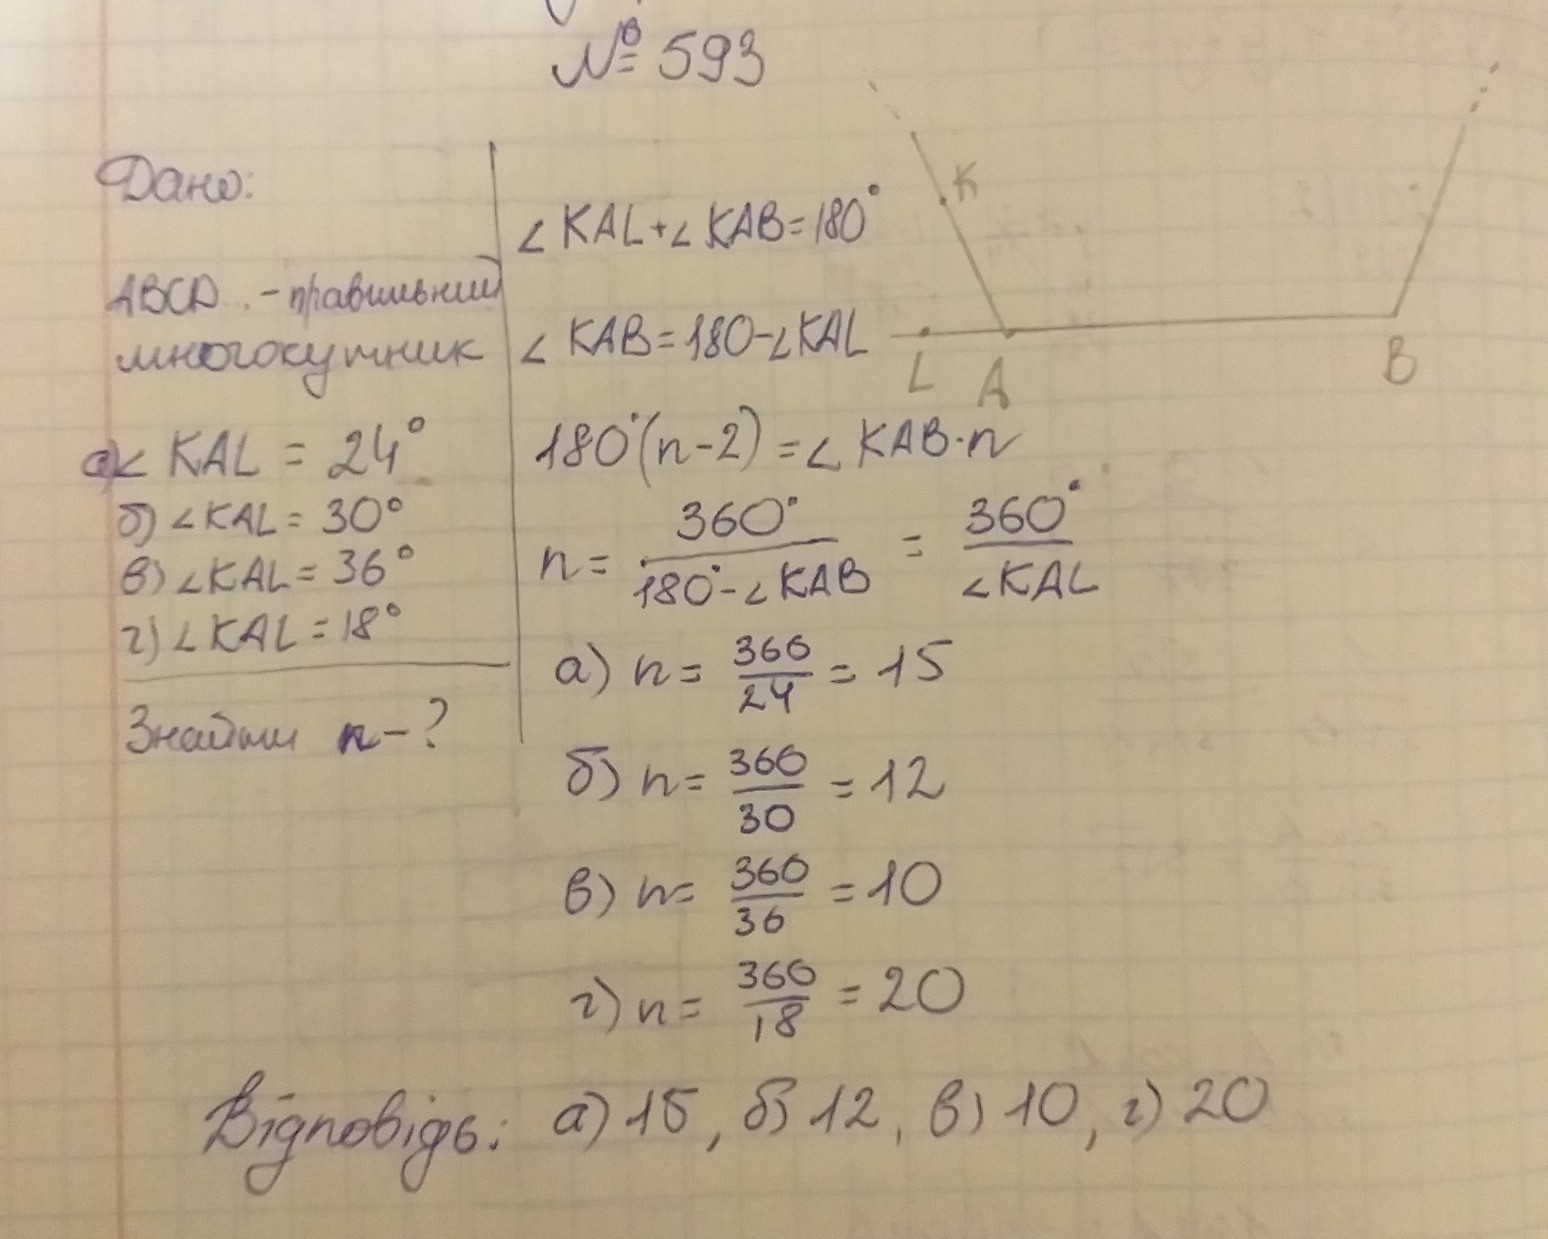 № 593
Дано:
ABCD... - правильний
многокутник
а) ∠KAL = 24°
б) ∠KAL = 30°
в) ∠KAL = 36°
г) ∠KAL = 18°
Знайти n - ?
∠KAL + ∠KAB = 180°
∠KAB = 180 - ∠KAL
180°(n-2) = ∠KAB·n
n = 360° / (180° - ∠KAB) = 360° / ∠KAL
а) n = 360/24 = 15
б) n = 360/30 = 12
в) n = 360/36 = 10
г) n = 360/18 = 20
K
L A B
Відповідь: а) 15, б) 12, в) 10, г) 20